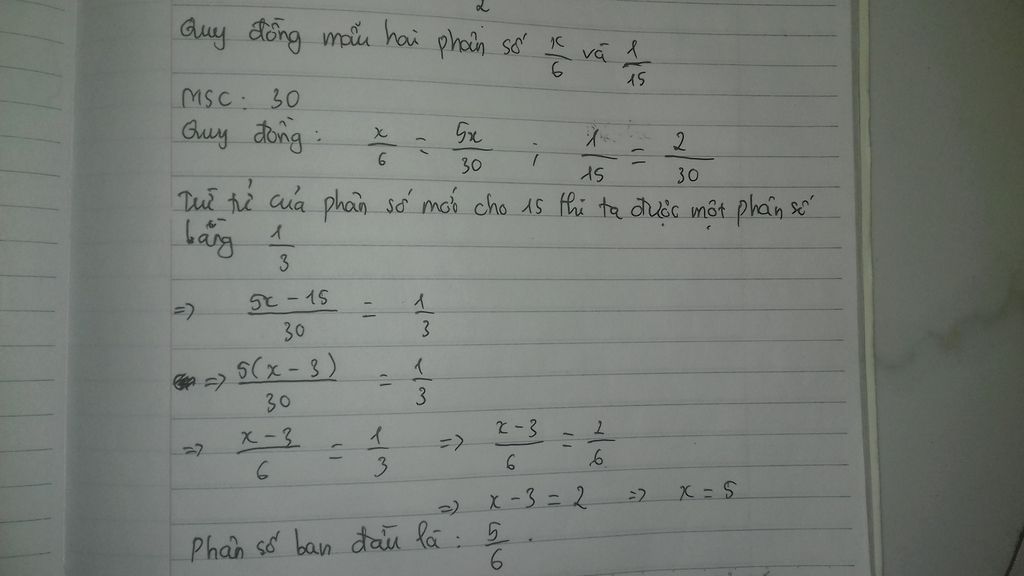 2
Quy đồng mẫu hai phân số x/6 và 1/15
MSC: 30
Quy đồng: x/6 = 5x/30 ; 1/15 = 2/30
Trừ tử của phân số mới cho 15 thì ta được một phân số
bằng 1/3
=> (5x - 15)/30 = 1/3
=> 5(x - 3)/30 = 1/3
=> (x - 3)/6 = 1/3 => (x - 3)/6 = 2/6
=> x - 3 = 2 => x = 5
Phân số ban đầu là: 5/6.